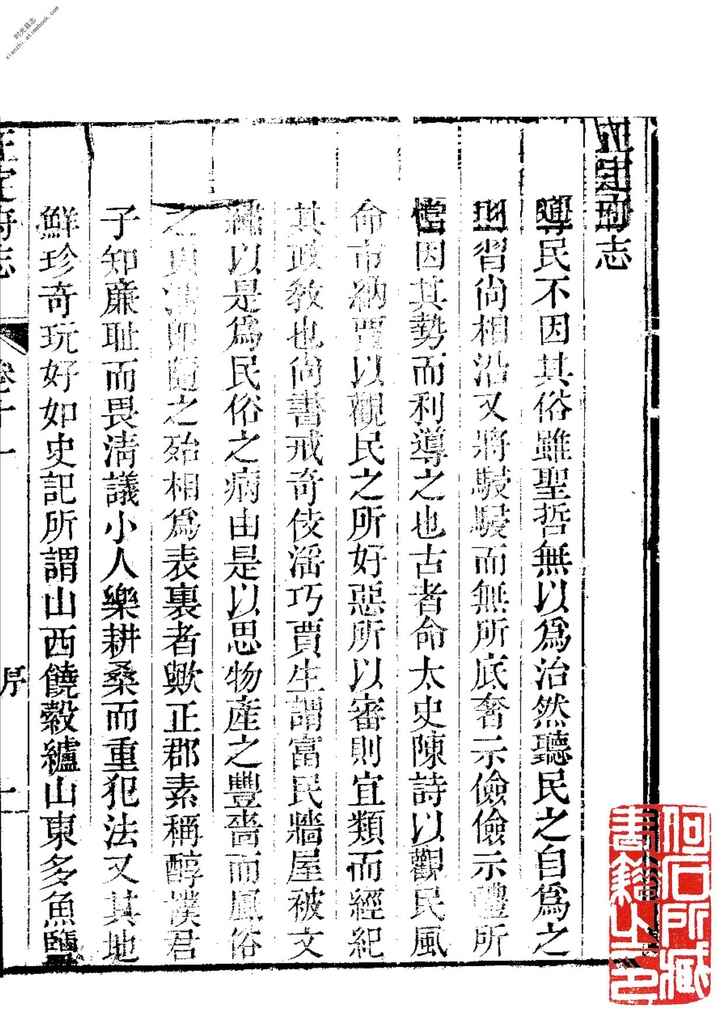 时光县志
xianzhi.atimebook.com
正定府志
導民不因其俗雖聖哲無以爲治然聽民之自爲之
則習尚相沿又將駸駸而無所底奢示儉儉示禮所
當因其勢而利導之也古者命太史陳詩以觀民風
命市納賈以觀民之所好惡所以審則宜類而經紀
其政敎也尚書戒奇伎淫巧賈生謂富民牆屋被文
繡以是爲民俗之病由是以思物產之豐嗇而風俗
之貞淫即隨之殆相爲表裏者歟正郡素稱醇樸君
子知廉耻而畏淸議小人樂耕桑而重犯法又其地
鮮珍奇玩好如史記所謂山西饒穀纑山東多魚鹽
正定府志
卷十一
序
一
何石所藏
書籍之印